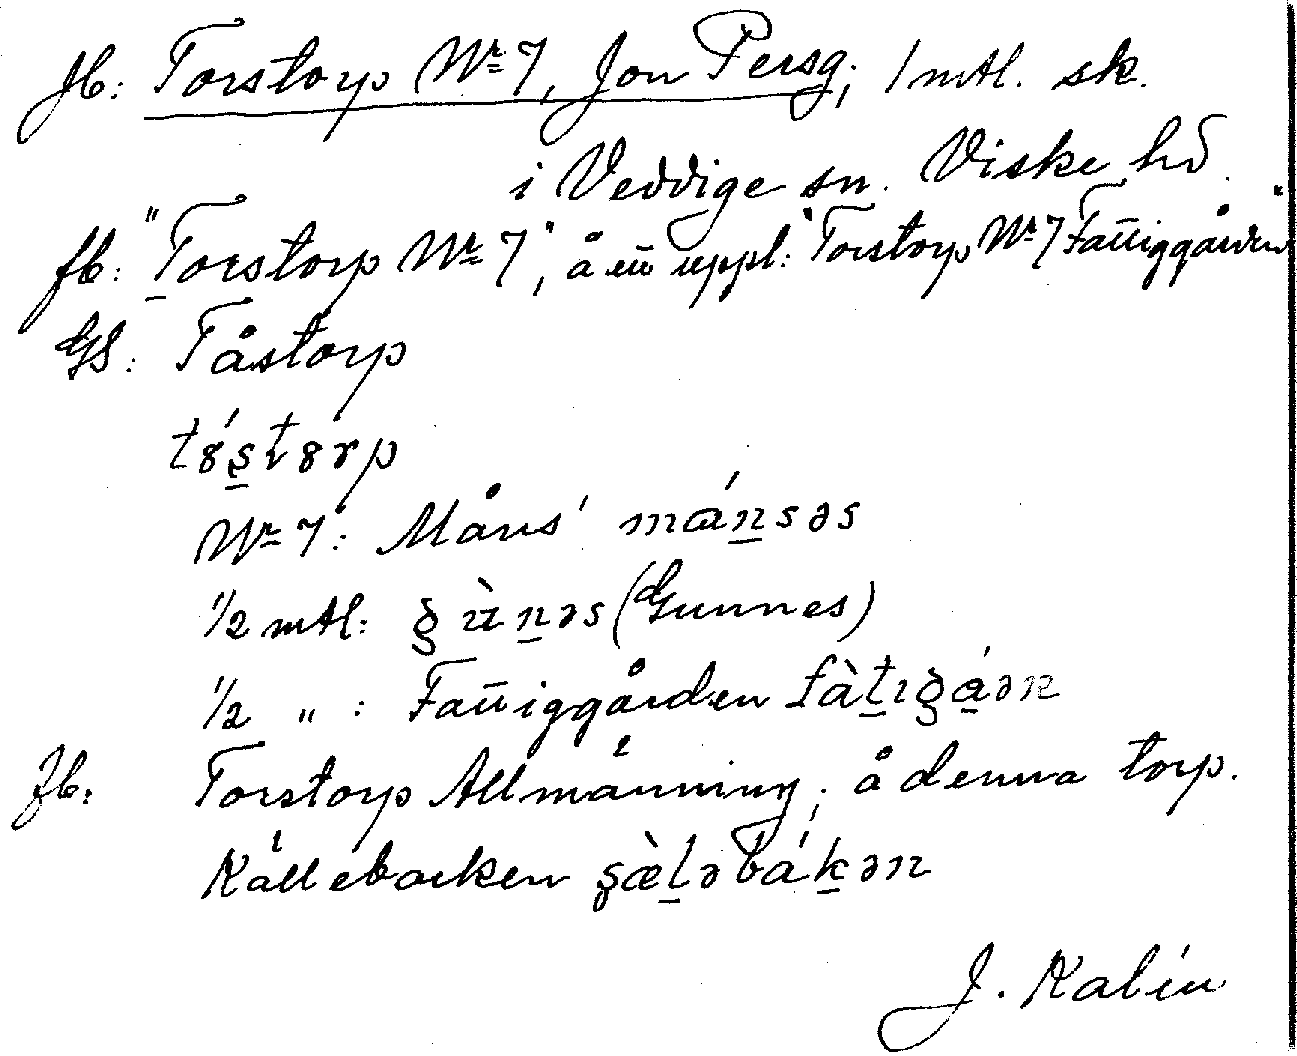 Jb: Torstorp Nr 7, Jon Persg; 1 mtl. sk.
i Veddige sn. Viske hd.
fb: "Torstorp Nr 7", å en uppl: "Torstorp Nr 7 Fattiggården"
GS: Tåstorp
Nr 7: Måns'
1/2 mtl: (Gunnes)
1/2 " : Fattiggården
Jb: Torstorp Allmänning; å denna torp.
Källebacken
J. Kalén